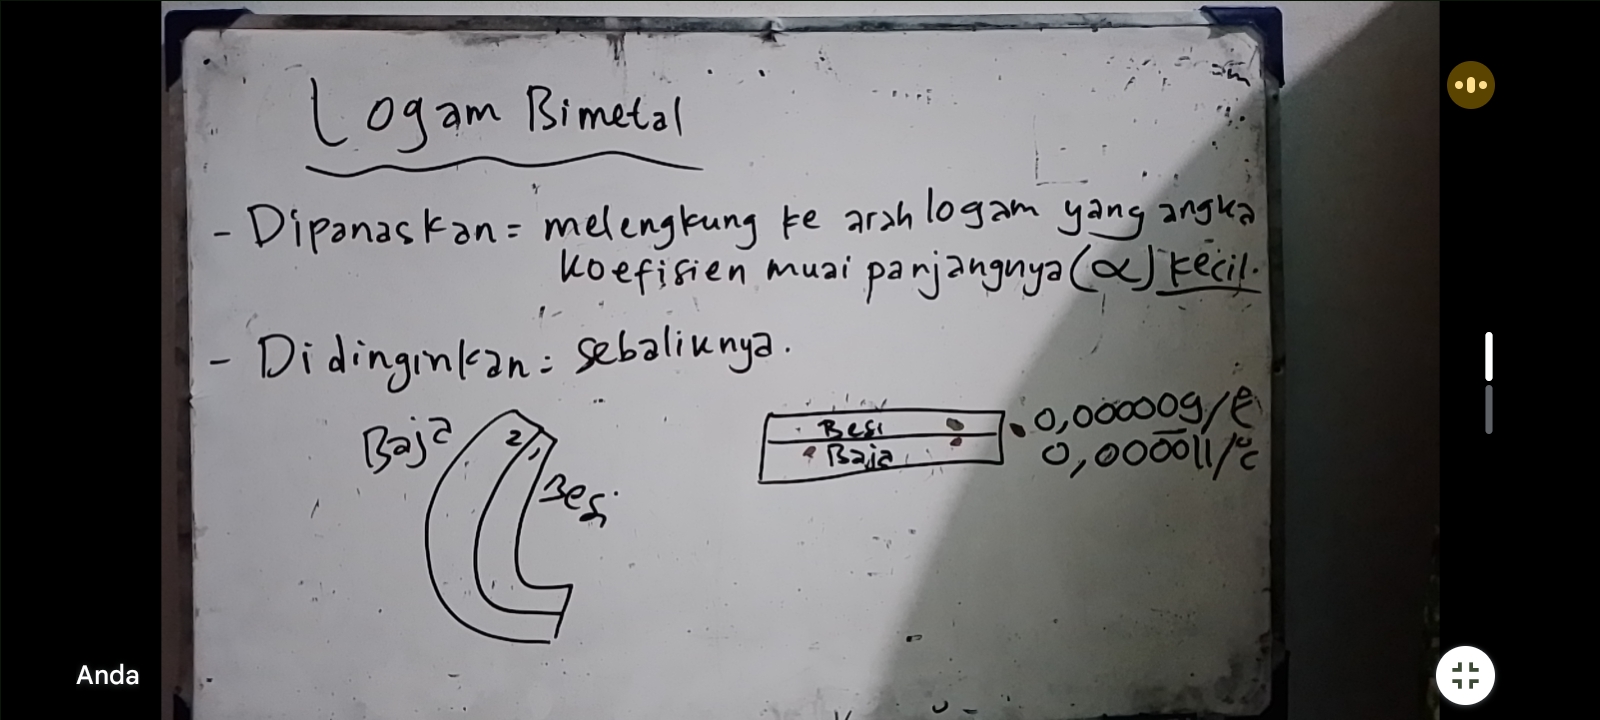 Logam Bimetal
- Dipanaskan = melengkung ke arah logam yang angka
koefisien muai panjangnya (α) kecil.
- Didinginkan = sebaliknya.
Baja
2
1
Besi
Besi
Baja
0,000009/°C
0,000011/°C
Anda